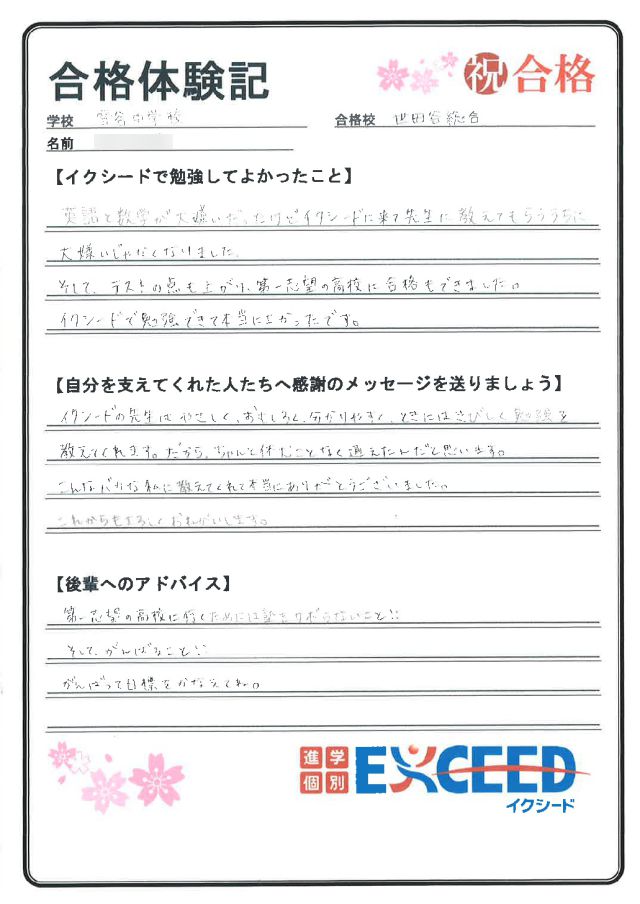 合格体験記
祝 合格
学校 雪谷中学校
合格校 世田谷総合
名前
【イクシードで勉強してよかったこと】
英語と数学が大嫌いだったけどイクシードに来て先生に教えてもらううちに
大嫌いじゃなくなりました。
そして、テストの点も上がり、第一志望の高校に合格もできました。
イクシードで勉強できて本当によかったです。
【自分を支えてくれた人たちへ感謝のメッセージを送りましょう】
イクシードの先生はやさしく、おもしろく、分かりやすく、ときにはきびしく勉強を
教えてくれます。だから、ちゃんと休むことなく通えたんだと思います。
こんなバカな私に教えてくれて本当にありがとうございました。
これからもよろしくおねがいします。
【後輩へのアドバイス】
第一志望の高校に行くためには塾をサボらないこと!!
そして、がんばること!!
がんばって目標をかなえてね。
進学
個別
EXCEED
イクシード